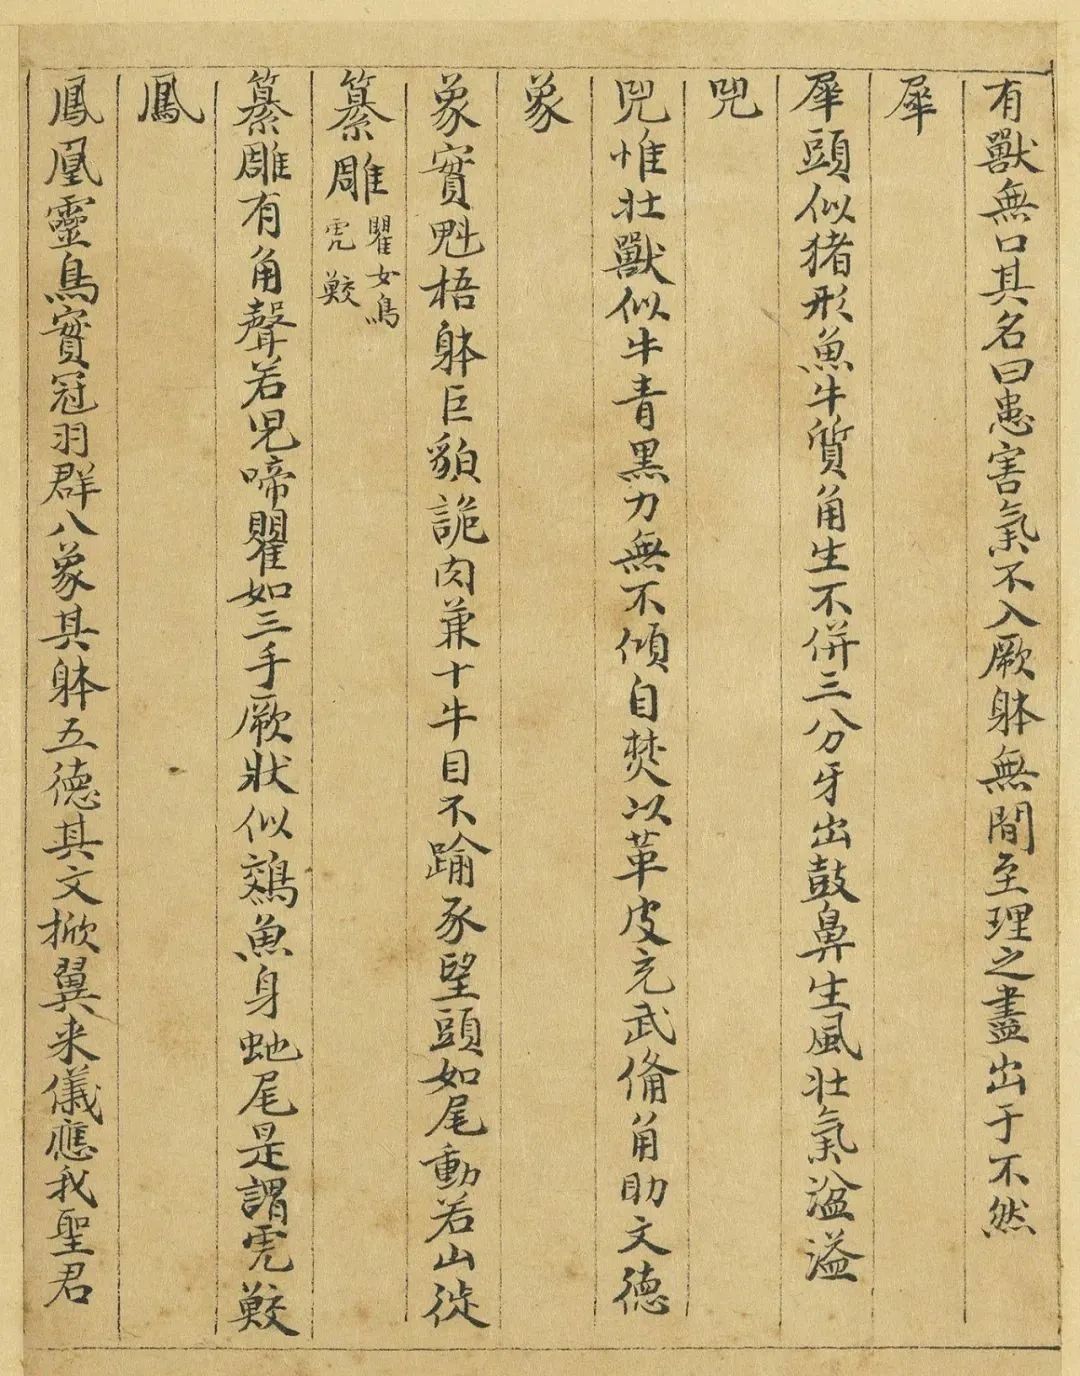 有獸無口其名曰患害氣不入厥躰無間至理之盡出于不然
犀
犀頭似猪形魚牛質角生不併三分牙出鼓鼻生風壯氣湓溢
兕
兕惟壯獸似牛青黑力無不傾自焚以革皮充武俻角助文德
象
象實魁梧躰巨貌詭肉兼十牛目不踰豕望頭如尾動若山徙
纂雕 瞿女鳥 虎鮫
纂雕有角聲若児啼瞿如三手厥狀似鵁魚身虵尾是謂虎鮫
鳳
鳳凰靈鳥實冠羽群八象其躰五德其文掀翼来儀應我聖君